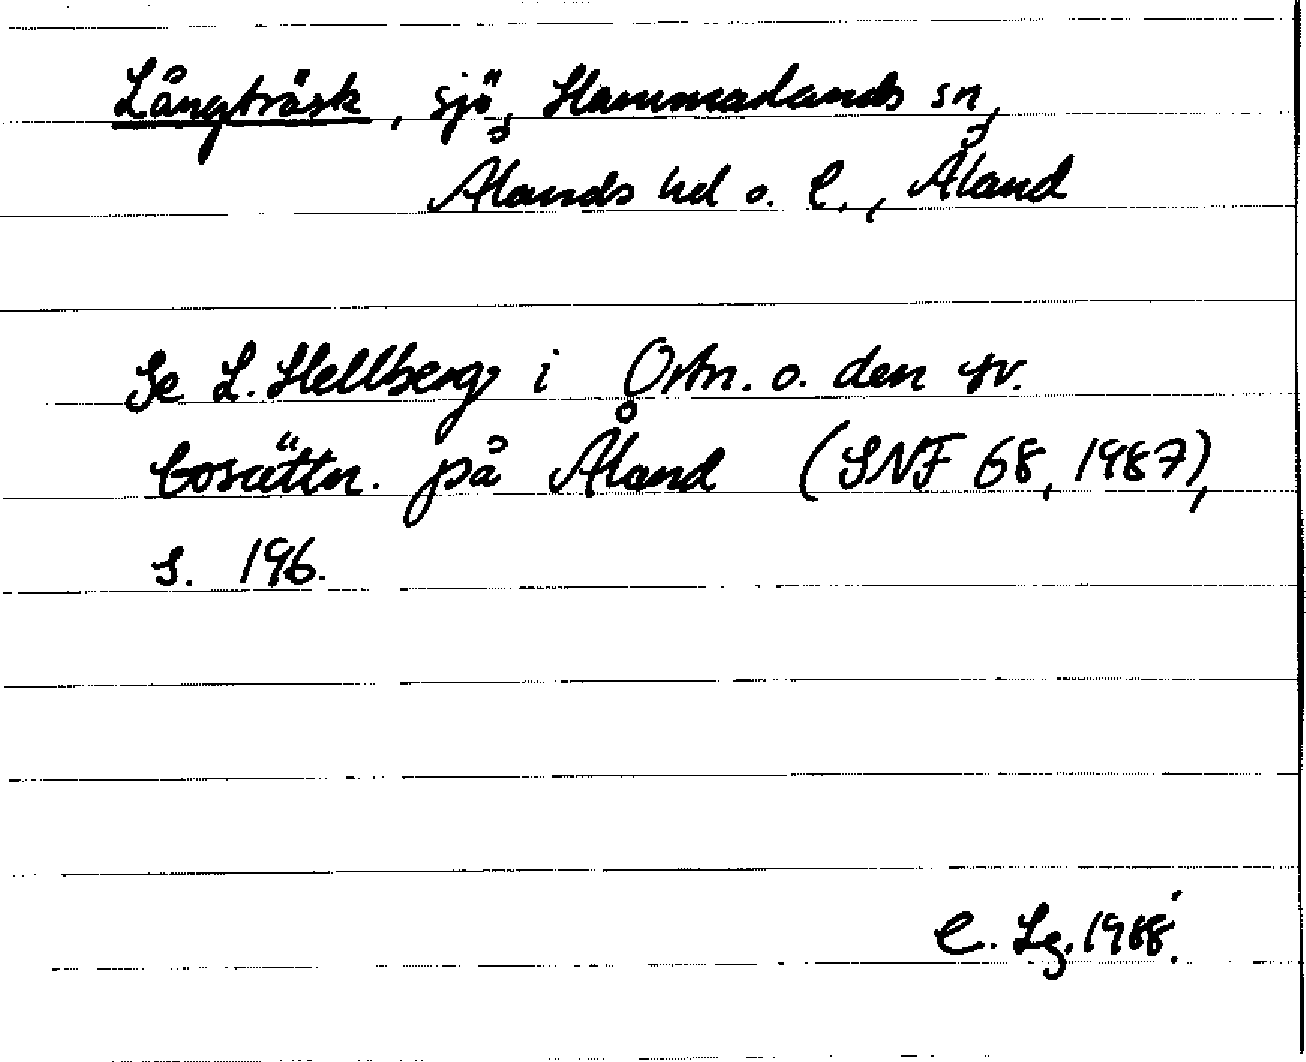 Långträsk, sjö, Hammarlands sn,
Ålands hd o. l., Åland
Se L. Hellberg i Ortn. o. den sv.
bosättn. på Åland (SNF 68, 1987),
s. 196.
C. Lg. 1988.